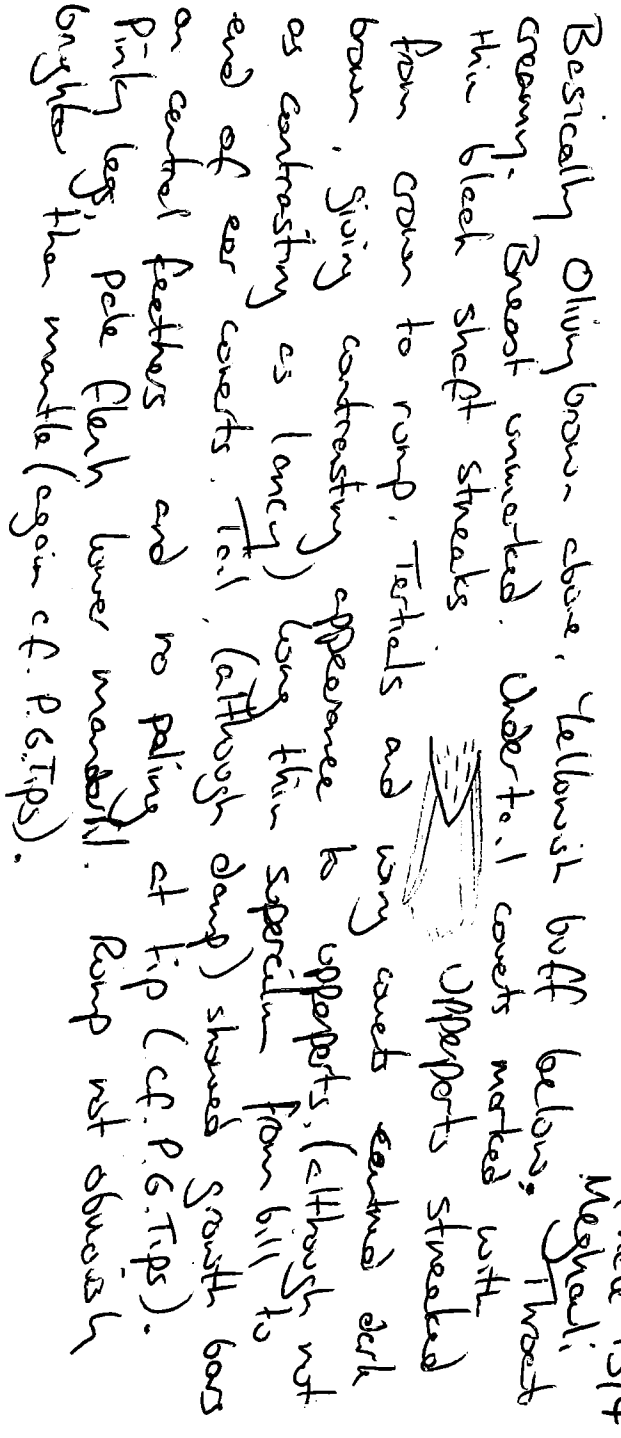 15/4
Meghauli
Basically Olivey brown above, Yellowish buff below. Throat
creamy. Breast unmarked. Undertail coverts marked with
thin black shaft streaks. Upperparts streaked
from crown to rump. Tertials and wing coverts centred dark
brown, giving contrasting appearance to upperparts. (although not
as contrasting as lancy) long thin supercilium from bill to
end of ear coverts. Tail (although damp) showed growth bars
on central feathers and no paling at tip (cf. P.G.Tips).
Pinky legs, pale flesh lower mandible. Rump not obviously
brighter than mantle (again cf. P.G.Tips).